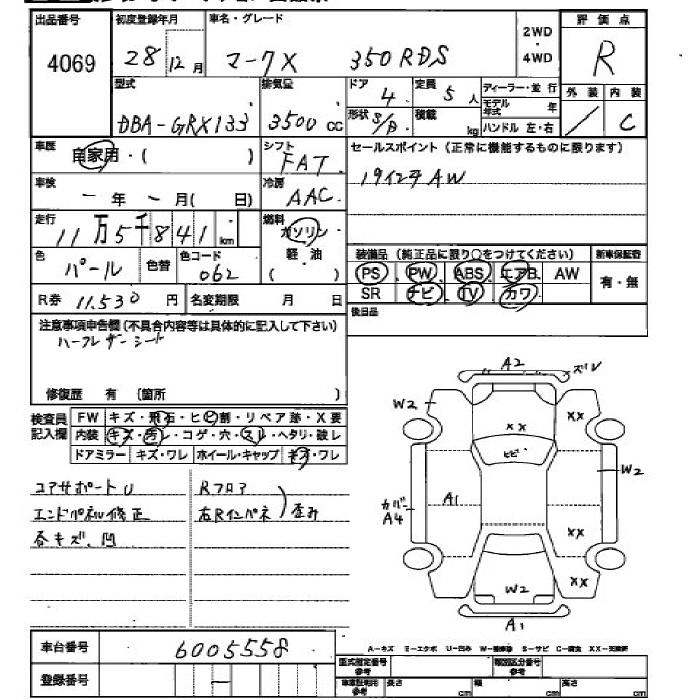 出品番号 初度登録年月 車名・グレード 2WD・4WD 評価点
4069 28年12月 マークX 350RDS R
型式 排気量 ドア 定員 ディーラー・並行 外装 内装
DBA-GRX133 3500cc 4 5人 モデル年式 年 / C
形状 S/D 積載 kg ハンドル 左・右
車歴 自家用・( ) シフト FAT セールスポイント(正常に機能するものに限ります)
車検 - 年 - 月( 日) 冷房 AAC 19インチAW
走行 11万5千841km 燃料 ガソリン
色 パール 色替 色コード 062 軽・油 ( )
装備品(純正品に限り○をつけてください) 新車保証書
PS PW ABS エアB AW 有・無
R券 11.530円 名変期限 月 日 SR ナビ TV カワ
後日品
注意事項申告欄(不具合内容等は具体的に記入して下さい)
ハーフレザーシート
修復歴 有 (箇所 )
検査員記入欄 FW キズ・飛石・ヒビ割・リペア跡・X要
内装 キズ・汚レ・コゲ・穴・スレ・ヘタリ・破レ
ドアミラー キズ・ワレ ホイール・キャップ キズ・ワレ
コアサポートU Rフロア
エンドパネル修正 右Rインパネ 歪み
各キズ、凹
A2 ズレ
W2 XX XX
ヒビ
W2
A1
カバー A4
XX
XX
W2
A1
A-キズ E-エクボ U-凹み W-補修跡 S-サビ C-腐食 XX-交換済
車台番号 6005558
登録番号 -
型式指定番号 参考 類別区分番号 参考
車庫証明用 参考 長さ cm 幅 cm 高さ cm